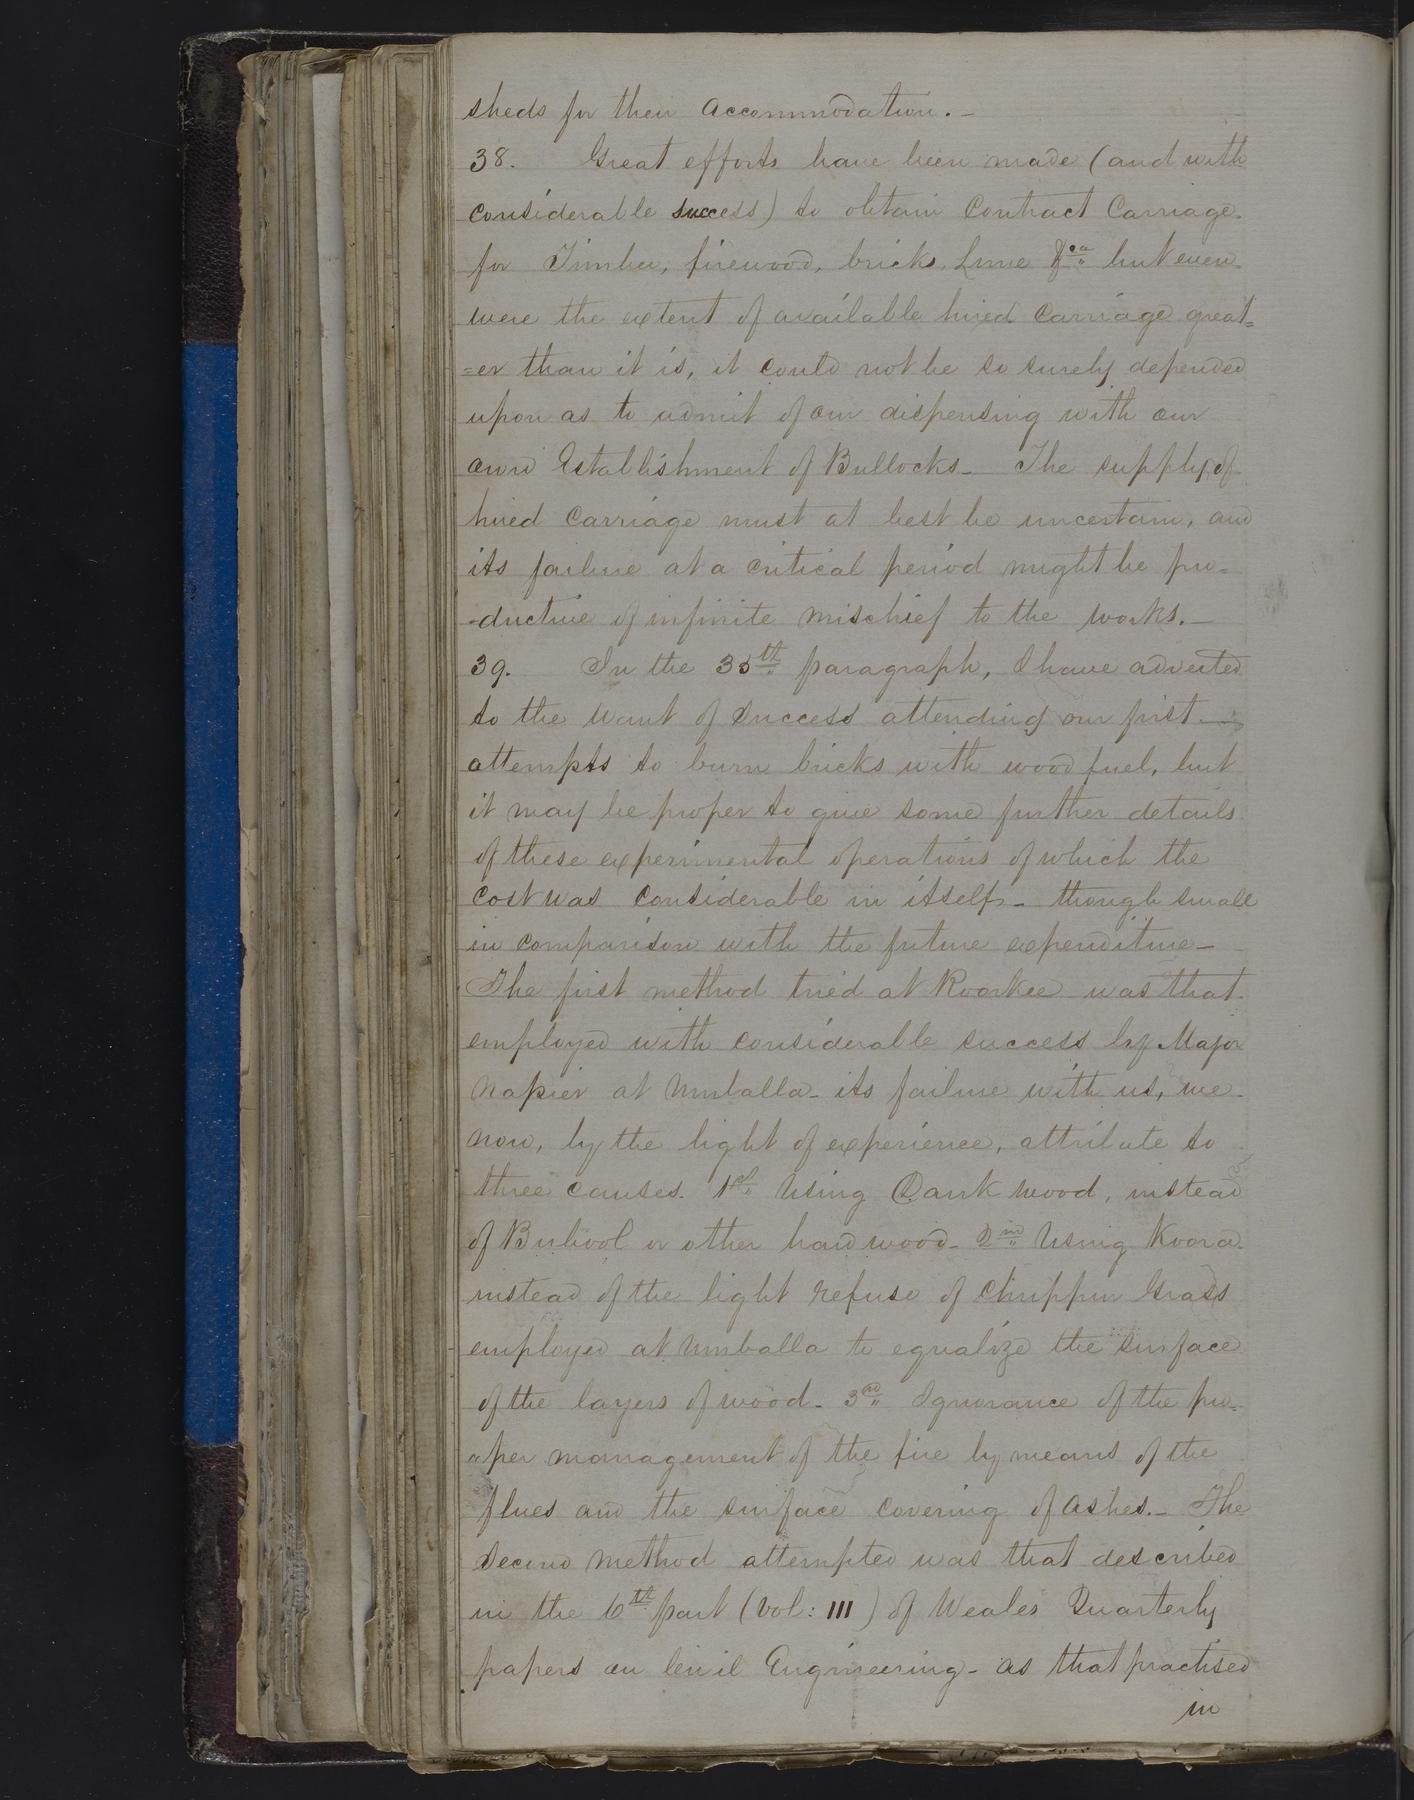 sheds for their accommodation. –
38. Great efforts have been made (and with
considerable success) to obtain Contract Carriage
for Timber, firewood, bricks, Lime &ca but even
were the extent of available hired Carriage great=
=er than it is, it could not be so surely depended
upon as to admit of our dispensing with our
own Establishment of Bullocks – The supply of
hired Carriage must at best be uncertain, and
its failure at a critical period might be pro-
-ductive of infinite mischief to the works. –
39. In the 35th paragraph, I have adverted
to the want of success attending our first
attempts to burn bricks with wood fuel, but
it may be proper to give some further details
of these experimental operations of which the
cost was considerable in itself – though small
in comparison with the future expenditure –
The first method tried at Roorkee was that
employed with considerable success by Major
Napier at Umballa – its failure with us, we
now, by the light of experience, attribute to
three causes. 1st Using Dank wood, instead
of Bubool or other hard wood – 2nd Using Koora
instead of the light refuse of Chuppur Grass
employed at Umballa to equalize the surface
of the layers of wood – 3rd Ignorance of the pro-
-per management of the fire by means of the
flues and the surface covering of ashes. – The
second method attempted was that described
in the 6th part (Vol: III) of Weales Quarterly
papers on Civil Engineering – as that practised
in